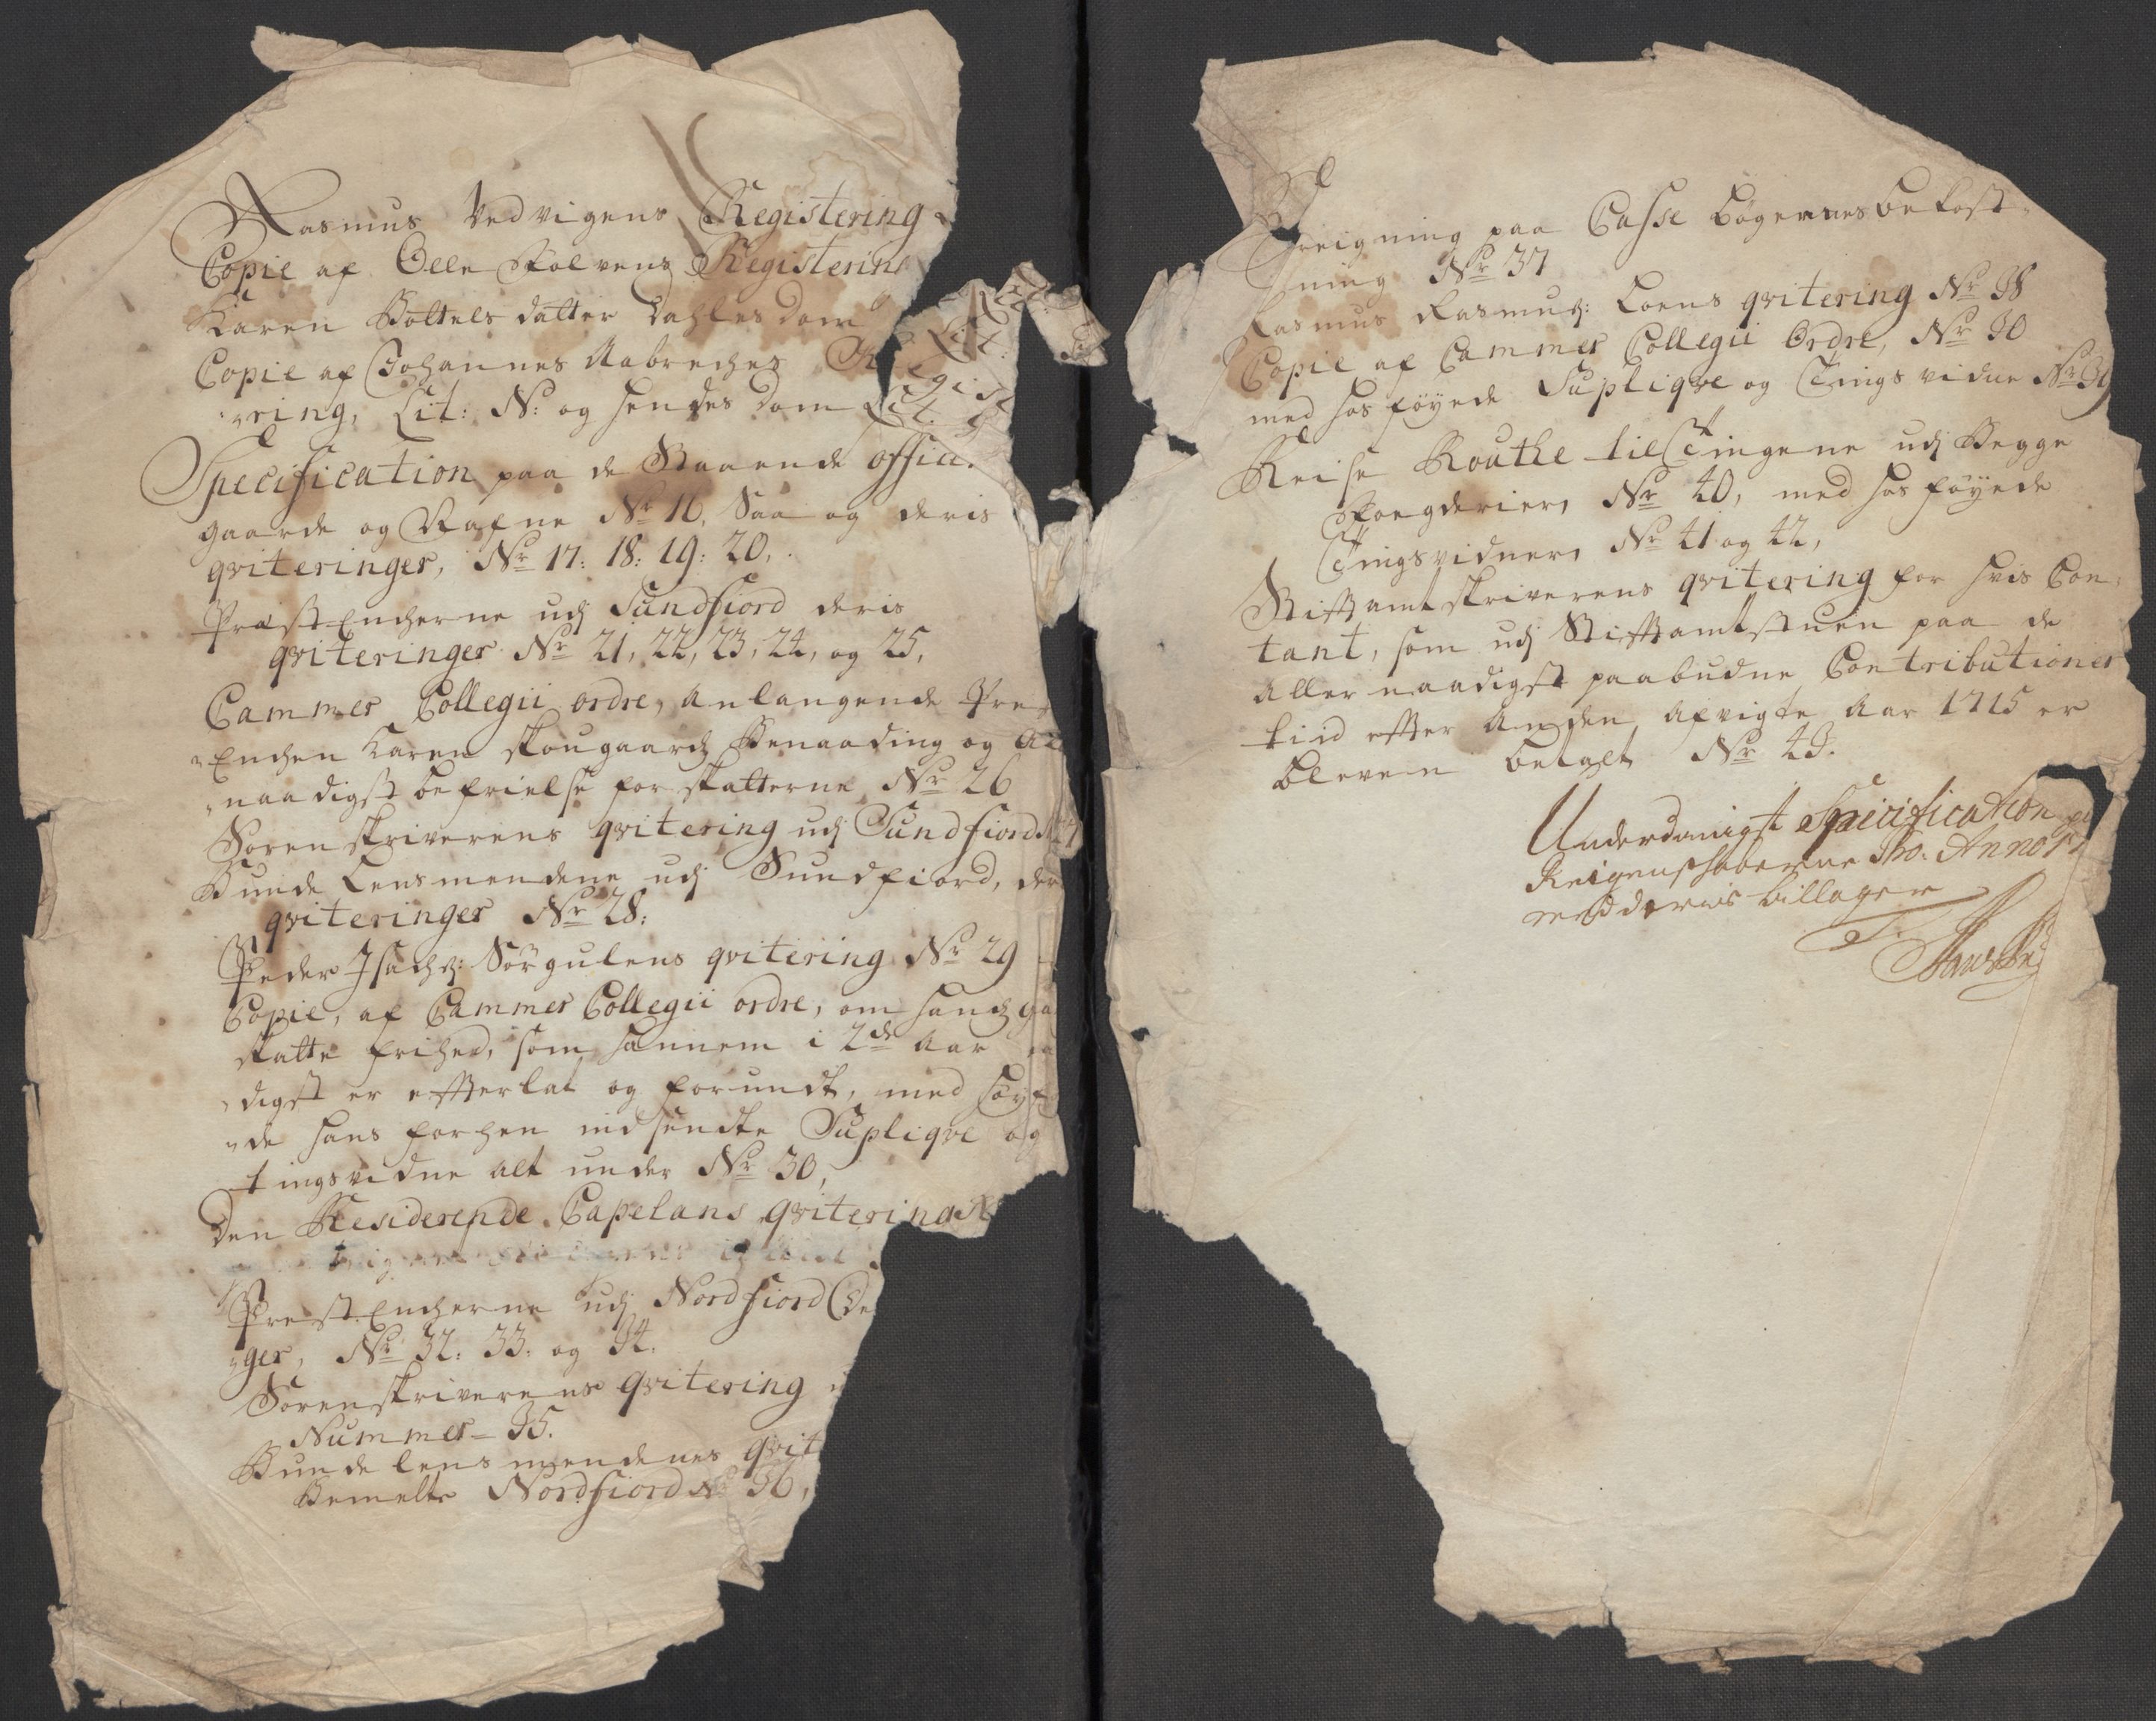 Rasmus Vedvigens Registering
Copie af Oelle Folvens Registering
Karen Bottels datter Dahles dom
Copie af Johannes Aabreches Regist
ring, Lit: N: og hendes dom Lit.
Specification paa de Staaende officer
gaarde og Nafne No 16, Saa og deris
qviteringer, No 17: 18: 19: 20,
Præst Encherne udj Sundfiord deris
qviteringer No 21, 22, 23, 24, og 25,
Cammer Collegii ordre, anlangende Pre
Enchen Karen Skougaards Benaading og
naadigst befrielse for skatterne No 26
Sorenskriverens qvitering udj Sundfiord 27
Bunde Lensmendene udj Sundfiord, der
qviteringer No 28:
Peder Isachs: Sørgulens qvitering No 29
Copie, af Cammer Collegii ordre, om hands ga
skatte frihed, som hannem i 2de Aar
digst er efterlat og forundt, med høyf
de hans forhen indsendte Supliqve og
tingsvidne alt under No 30,
Den Residerende Capelans qvitering
Prest Encherne udj Nordfiord De
ger, No 32: 33: og 34.
Sorenskriverens qvitering
Nummer 35.
Bunde lensmendenes qvit
Bemelte Nordfiord No 36,
Reigning paa Casse bøgernes bekost
ning No 37
Rasmus Rasmuss: Loens qvitering No 38
Copie af Cammer Collegii Ordre, No 30
med hos føyede Supliqve og Tingsvidne No 39
Reise Routhe til Tingene udj Begge
Foegderier No 40, med hos føyede
Tingsvidner No 41 og 42,
Stiftamtskriverens qvitering for hvis Con
tant, som udj Stiftamtstuen paa de
allernaadigst paabudne Contributioner
tiid efter anden afvigte Aar 1715 er
bleven betalt No 43.
Underdanigst Specification
Reigenskaberne Pro: Anno 17
med deris billager